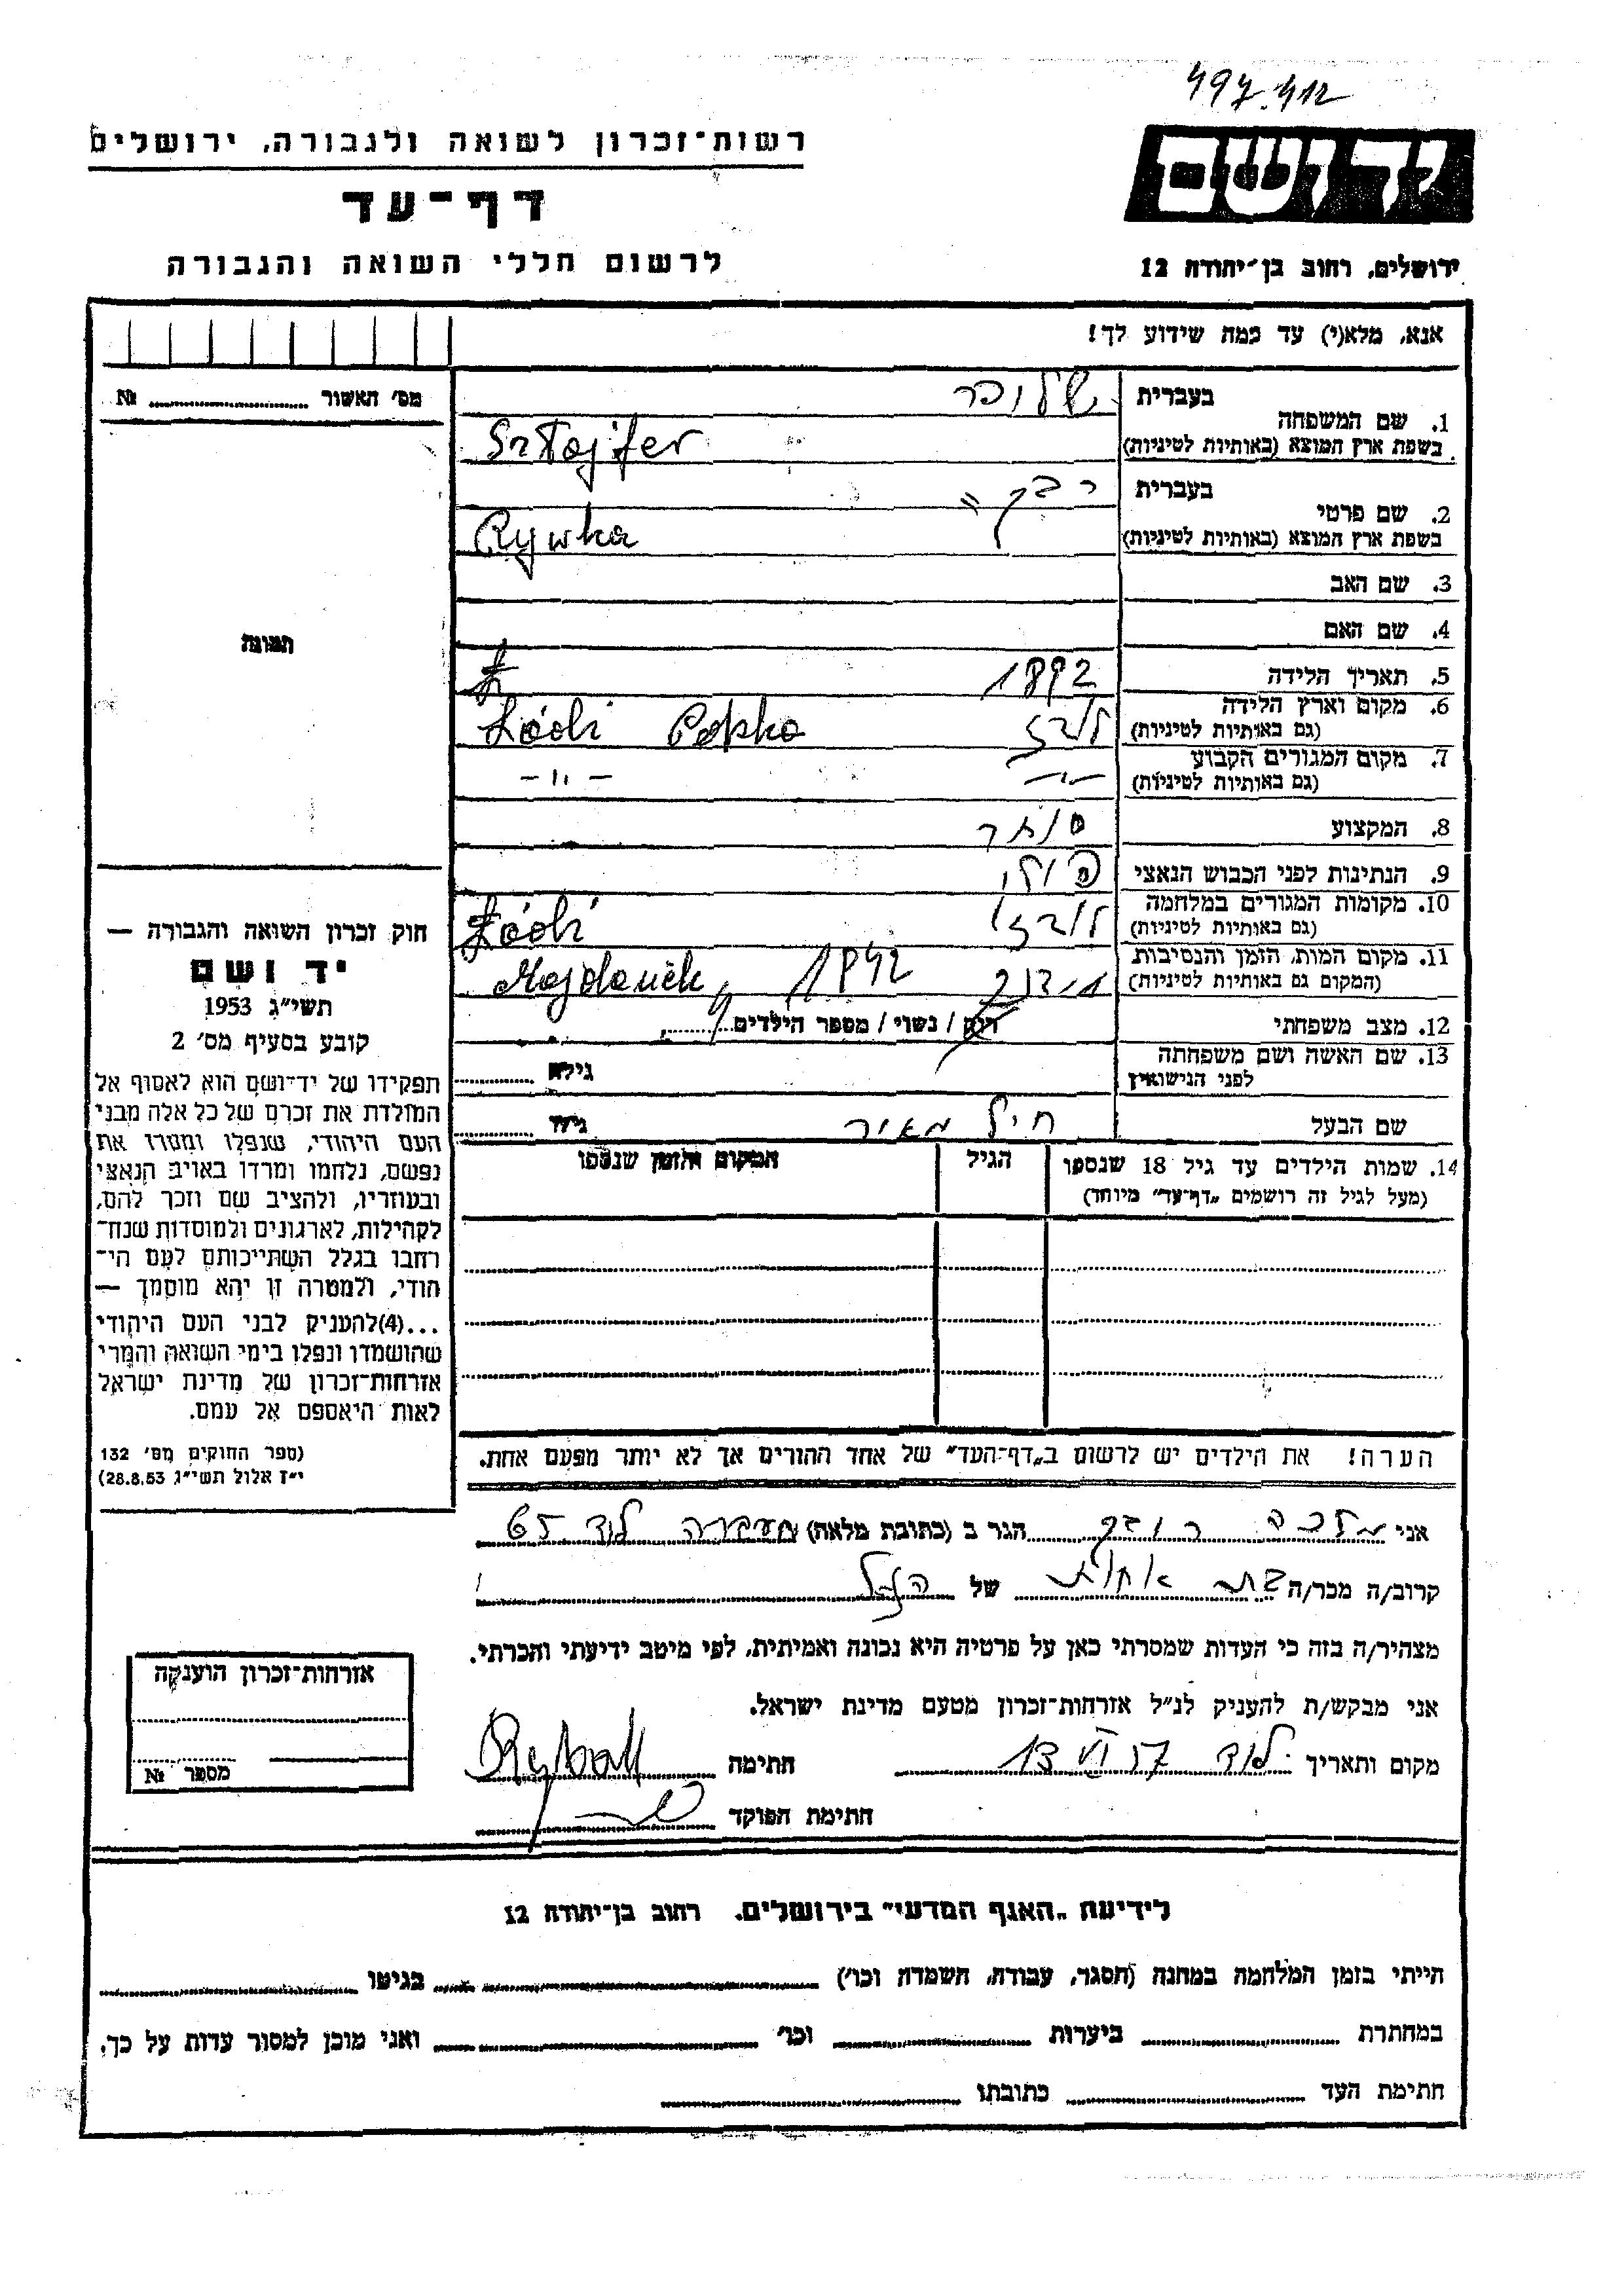 497.412
רשות-זכרון לשואה ולגבורה, ירושלים
דף-עד
לרשום חללי השואה והגבורה
ידושם
ירושלים, רחוב בן-יהודה 12
אנא, מלא(י) עד כמה שידוע לך!
מס' האשור № 
תמונה
בעברית
1. שם המשפחה
בשפת ארץ המוצא (באותיות לטיניות)
Sztajfer
בעברית רבקה
2. שם פרטי
בשפת ארץ המוצא (באותיות לטיניות) Rywka
3. שם האב
4. שם האם
5. תאריך הלידה 1892
6. מקום וארץ הלידה
(גם באותיות לטיניות) לודז' Łódź Polska
7. מקום המגורים הקבוע
(גם באותיות לטיניות) -"- -"-
8. המקצוע סוחר
9. הנתינות לפני הכבוש הנאצי פולני
10. מקומות המגורים במלחמה
(גם באותיות לטיניות) לודז' Łódź
11. מקום המות, הזמן והנסיבות
(המקום גם באותיות לטיניות) Majdanek, 1942
12. מצב משפחתי רווק / נשוי / מספר הילדים
13. שם האשה ושם משפחתה
לפני הנישואין
גילה
שם הבעל מאיר
גילו
14. שמות הילדים עד גיל 18 שנספו
(מעל לגיל זה רושמים "דף-עד" מיוחד)
הגיל
המקום והזמן שנספו
הערה! את הילדים יש לרשום ב"דף-העד" של אחד ההורים אך לא יותר מפעם אחת.
חוק זכרון השואה והגבורה —
יד ושם
תשי"ג 1953
קובע בסעיף מס' 2
תפקידו של יד-ושם הוא לאסוף אל
המולדת את זכרם של כל אלה מבני
העם היהודי, שנפלו ומסרו את
נפשם, נלחמו ומרדו באויב הנאצי
ובעוזריו, ולהציב שם וזכר להם,
לקהילות, לארגונים ולמוסדות שנח־
רחבו בגלל השתייכותם לעם הי־
הודי, ולמטרה זו יהא מוסמך —
...(4)להעניק לבני העם היהודי
שהושמדו ונפלו בימי השואה והמרי
אזרחות-זכרון של מדינת ישראל
לאות היאספם אל עמם.
(ספר החוקים מס' 132
י"ז אלול תשי"ג 28.8.53)
אני מלכה הגר ב (כתובת מלאה) מעברה לוד 65
קרוב/ה מכר/ה בת אחות של הנ"ל
מצהיר/ה בזה כי העדות שמסרתי כאן על פרטיה היא נכונה ואמיתית, לפי מיטב ידיעתי והכרתי.
אני מבקש/ת להעניק לנ"ל אזרחות-זכרון מטעם מדינת ישראל.
מקום ותאריך לוד 13 VI 57 חתימה
חתימת הפוקד
אזרחות-זכרון הוענקה
מספר №
לידיעת "האגף המדעי" בירושלים, רחוב בן-יהודה 12
הייתי בזמן המלחמה במחנה (הסגר, עבודה, השמדה וכו') בגיטו
במחתרת ביערות וכו' ואני מוכן למסור עדות על כך.
חתימת העד כתובתו